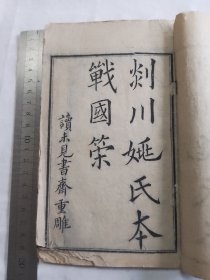 剡川姚氏本
戰國策
讀未見書齋重雕